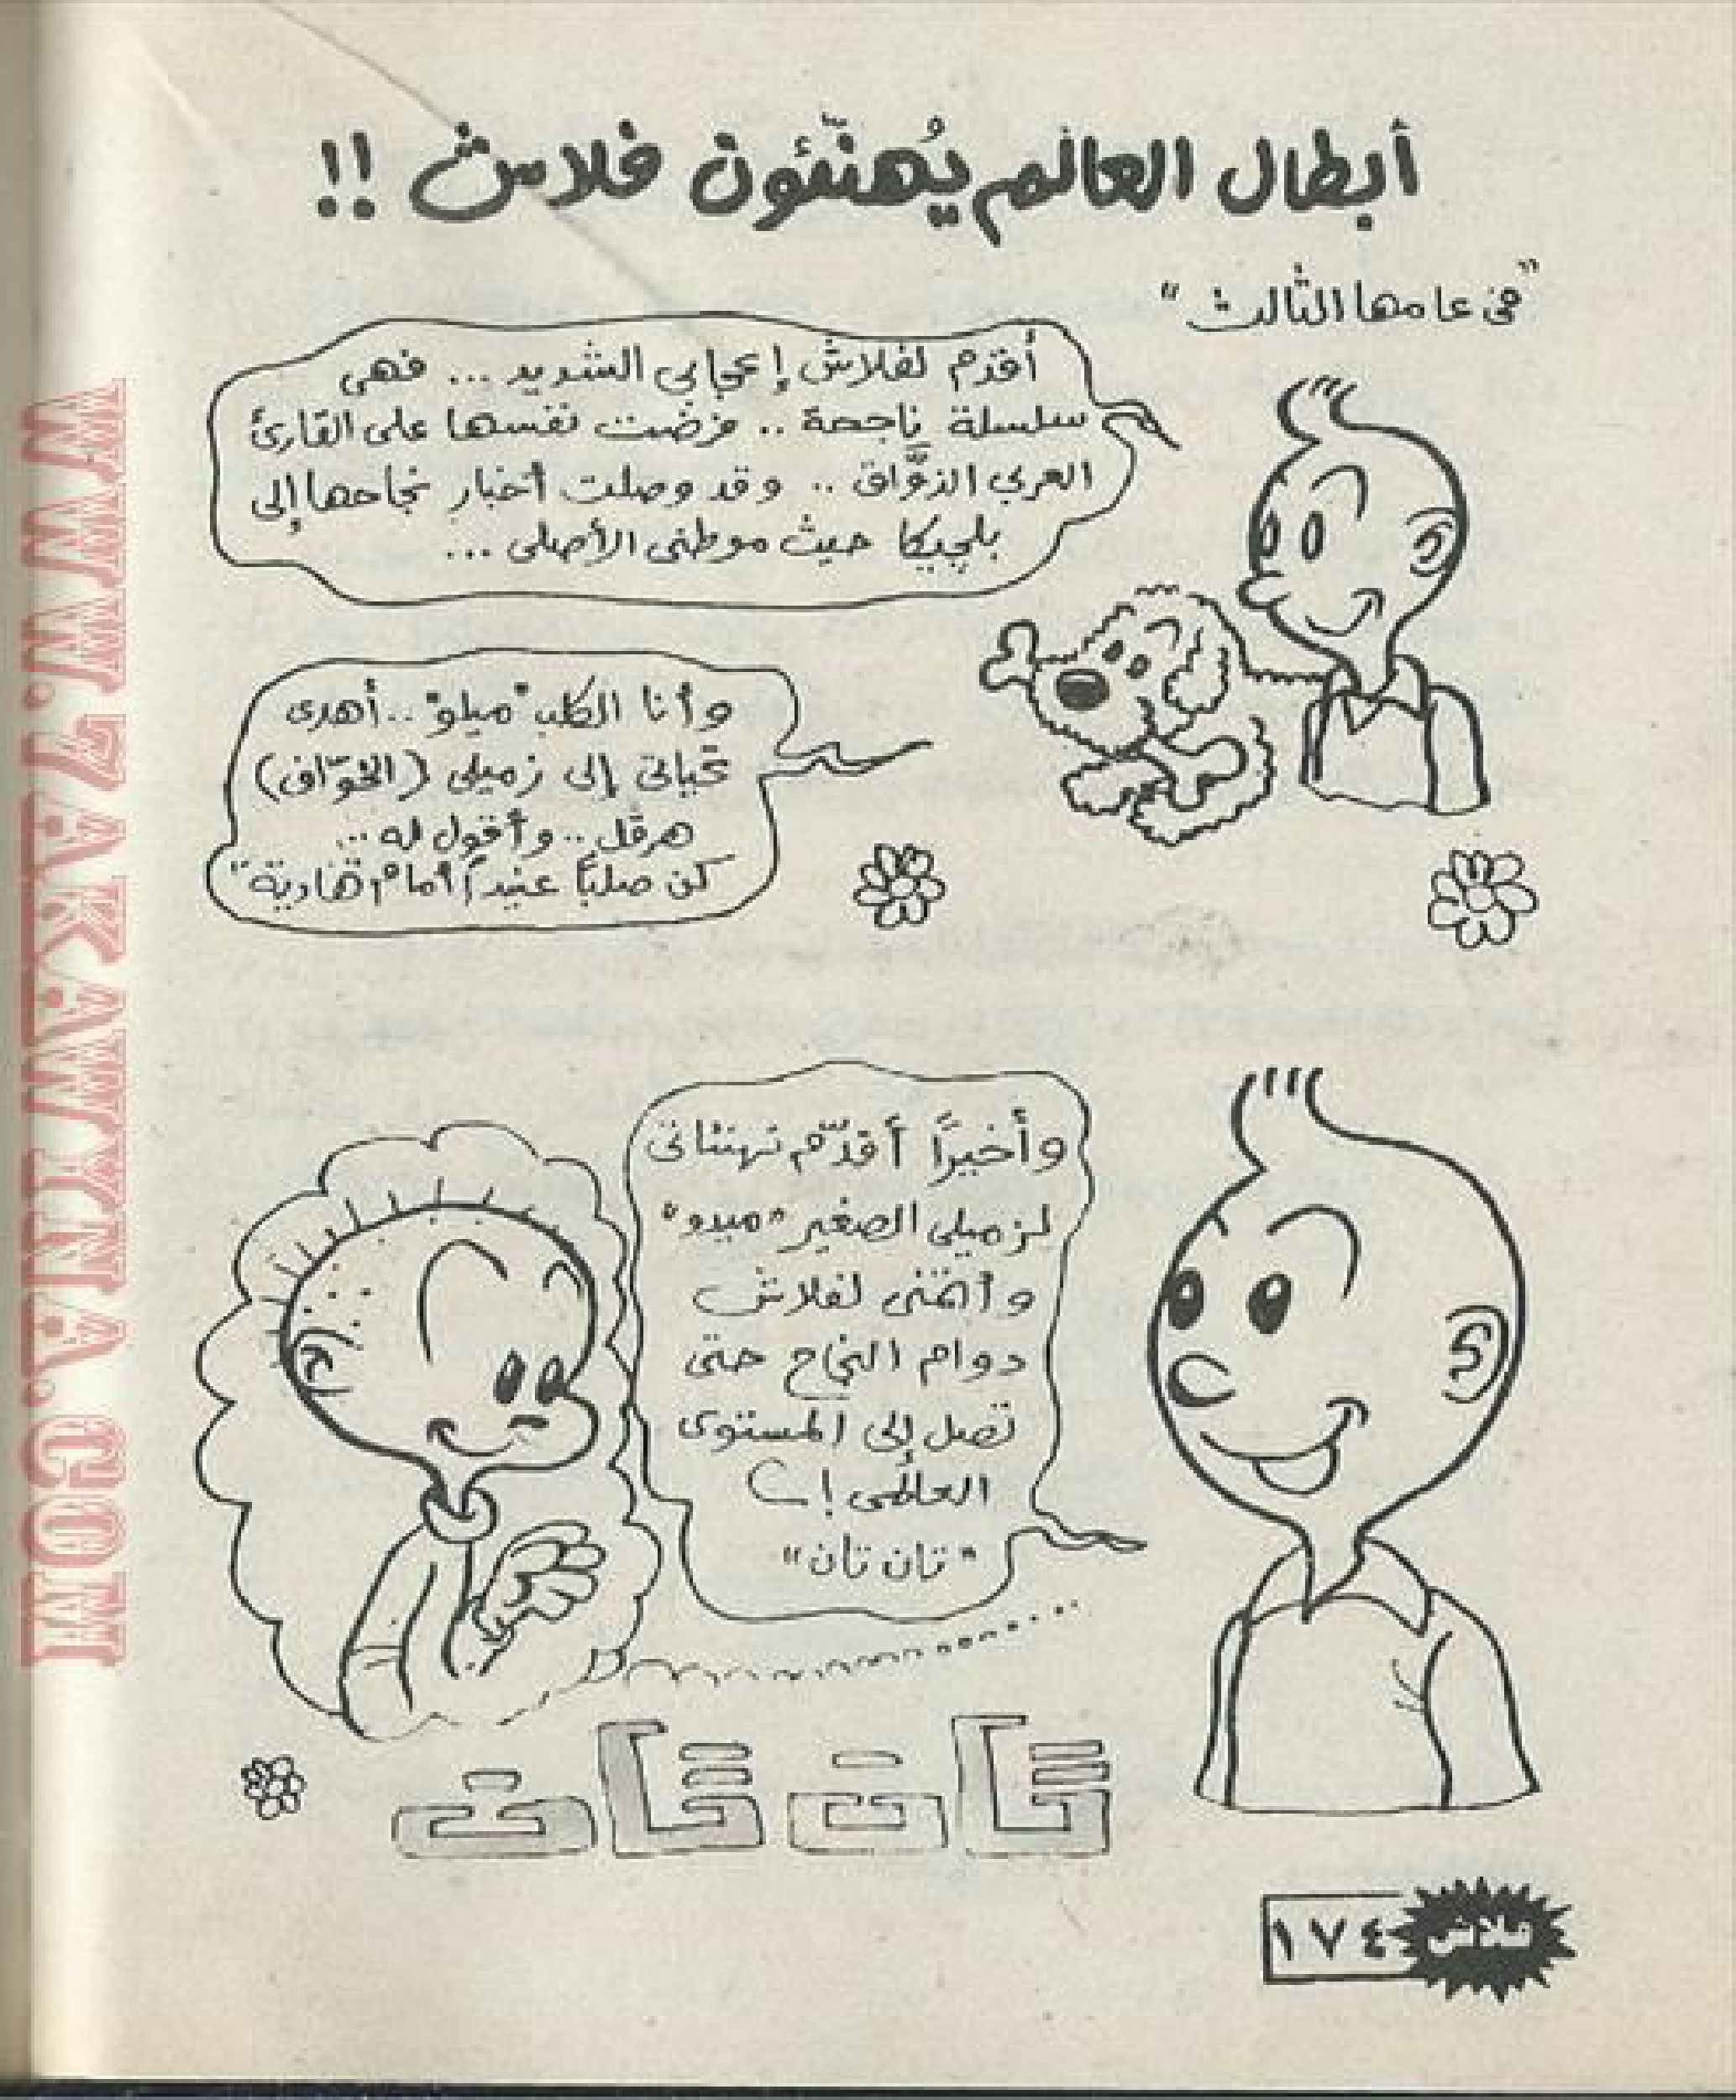 أبطال العالم يُهنّئون فلاش !!
"في عامها الثالث"
أقدم لفلاش إعجابي الشديد ... فهي
سلسلة ناجحة .. فرضت نفسها على القارئ
العربي الذوَّاق .. وقد وصلت أخبار نجاحها إلى
بلجيكا حيث موطني الأصلي ...
وأنا الكلب "ميلو" .. أهدى
تحياتي إلى زميلي (الخوّاف)
هرقل .. وأقول له ..
كن صلبًا عنيدًا أمام
وأخيرًا أقدّم تهنئاتي
لزميلي الصغير "ميدو"
وأتمنى لفلاش
دوام النجاح حتى
تصل إلى المستوى
العالمي !
"تان تان"
تان تان
فلاش
١٧٤
WWW.7AKAWINA.COM